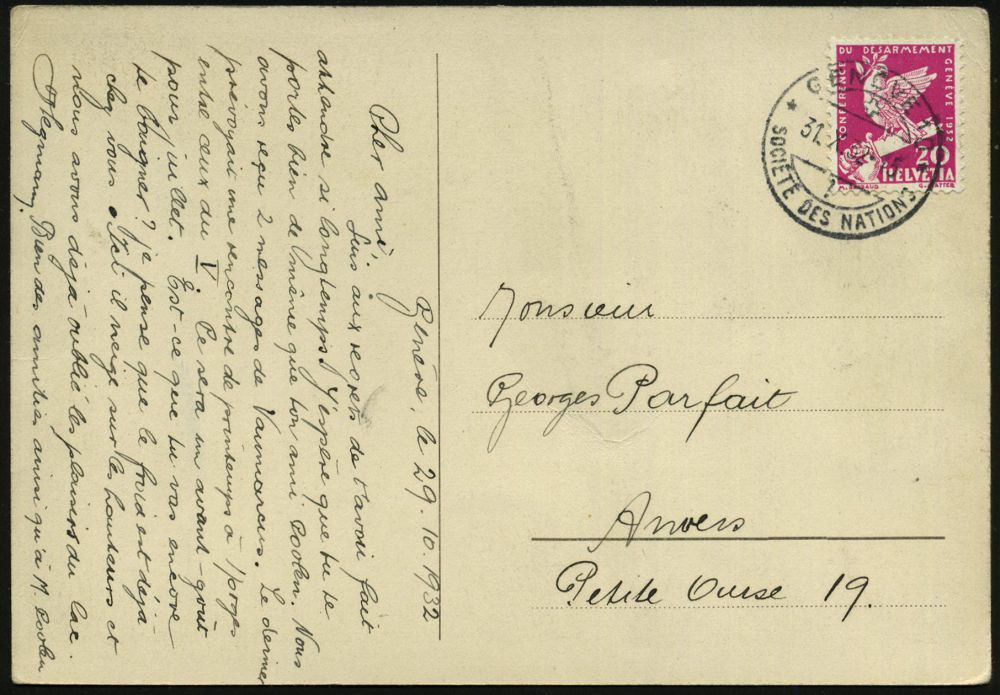 Genève, le 29.10.1932
Cher ami,
Suis aux regrets de t'avoir fait
attendre si longtemps. J'espère que tu te
portes bien de même que ton ami Coolen. Nous
avons reçu 2 messages de Vaumarcus. Le dernier
prévoyait une rencontre de printemps à
entre ceux du V. Ce sera un avant-goût
pour juillet. Est-ce que tu vas encore
te baigner? je pense que le froid est déjà
chez vous. Ici il neige sur les hauteurs et
nous avons déjà oublié les plaisirs du lac.
Bien des amitiés ainsi qu'à M. Coolen
CONFERENCE DU DESARMEMENT GENÈVE 1932
20
HELVETIA
GENÈVE
31.X.32
1
SOCIÉTÉ DES NATIONS
Monsieur
Georges Parfait
Anvers
Petite Ourse 19.